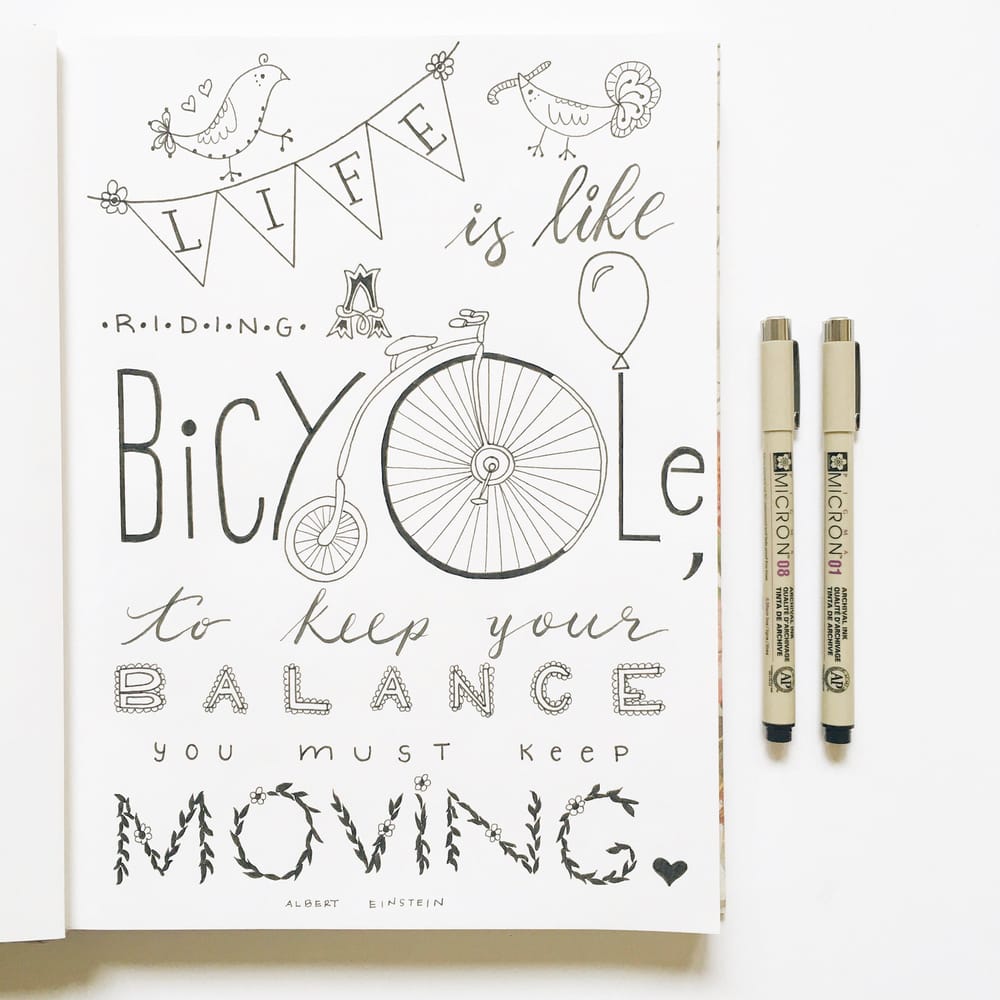 LIFE
is like
·R·I·D·I·N·G· A
BiCYCLe,
to keep your
BALANCE
YOU MUST KEEP
MOViNG.
ALBERT EINSTEIN
PIGMA
MICRON™ 08
ARCHIVAL INK
QUALITÉ D'ARCHIVAGE
TINTA DE ARCHIVE
AP
PIGMA
MICRON™ 01
ARCHIVAL INK
QUALITÉ D'ARCHIVAGE
TINTA DE ARCHIVE
AP